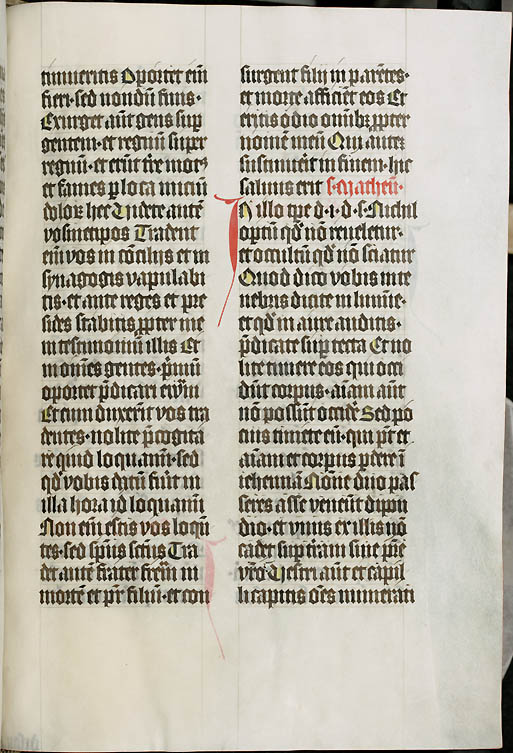 timueritis Oportet eni̅
fieri · sed nondu̅ finis ·
Exurget au̅t gens sup̲
gentem · et regnu̅ super
regnu̅ · et eru̅t t̅re mot⁹
et fames p̲ loca iniciu̅
doloꝝ hec Uidete aute̅
vosmetip̅os Tradent
eni̅ vos in co̅cilijs et in
synagogis vapulabi
tis · et ante reges et pre
sides stabitis p̲pter me
in testimoniu̅ illis Et
in om̅es gentes · p̅mu̅
oportet p̅dicari ew̅m
Et cum duxeri̅t vos tra
dentes · nolite p̅cogita
re quid loquam̅i · sed
qd̅ vobis datu̅ fu̅it in
illa hora id loquam̅i
Non eni̅ estis vos loque̅
tes · sed sp̅us sc̅tus Tra
det aute̅ frater fr̅em in
morte̅ et p̅r filiu̅ · et con
surgent filij in pare̅tes ·
et morte afficie̅t eos Et
eritis odio om̅ibꝫ p̲pter
nome̅ meu̅ Qui aute̅
sustinuerit in finem · hic
saluus erit s · Matheu̅ ·
In illo t̅pe · d · i · d · s · Nichil
optu̅ qd̅ no̅ reueletur ·
et occultu̅ qd̅ no̅ sciatur
Quod dico vobis in te
nebris dicite in lumi̅e ·
et qd̅ in aure auditis ·
p̅dicate sup̲ tecta Et no
lite timere eos qui occi
du̅t corpus · ai̅am au̅t
no̅ possu̅t occid̅e Sed po
cius timete eu̅ · qui p̅t et
ai̅am et corpus p̲dere i̅
iehenna̅ No̅ne duo pas
seres asse veneu̅t dipon
dio · et vnus ex illis no̅
cadet sup̲ t̅ram sine p̅re
v̅ro Uestri au̅t et capil
li capitis o̅es numerati